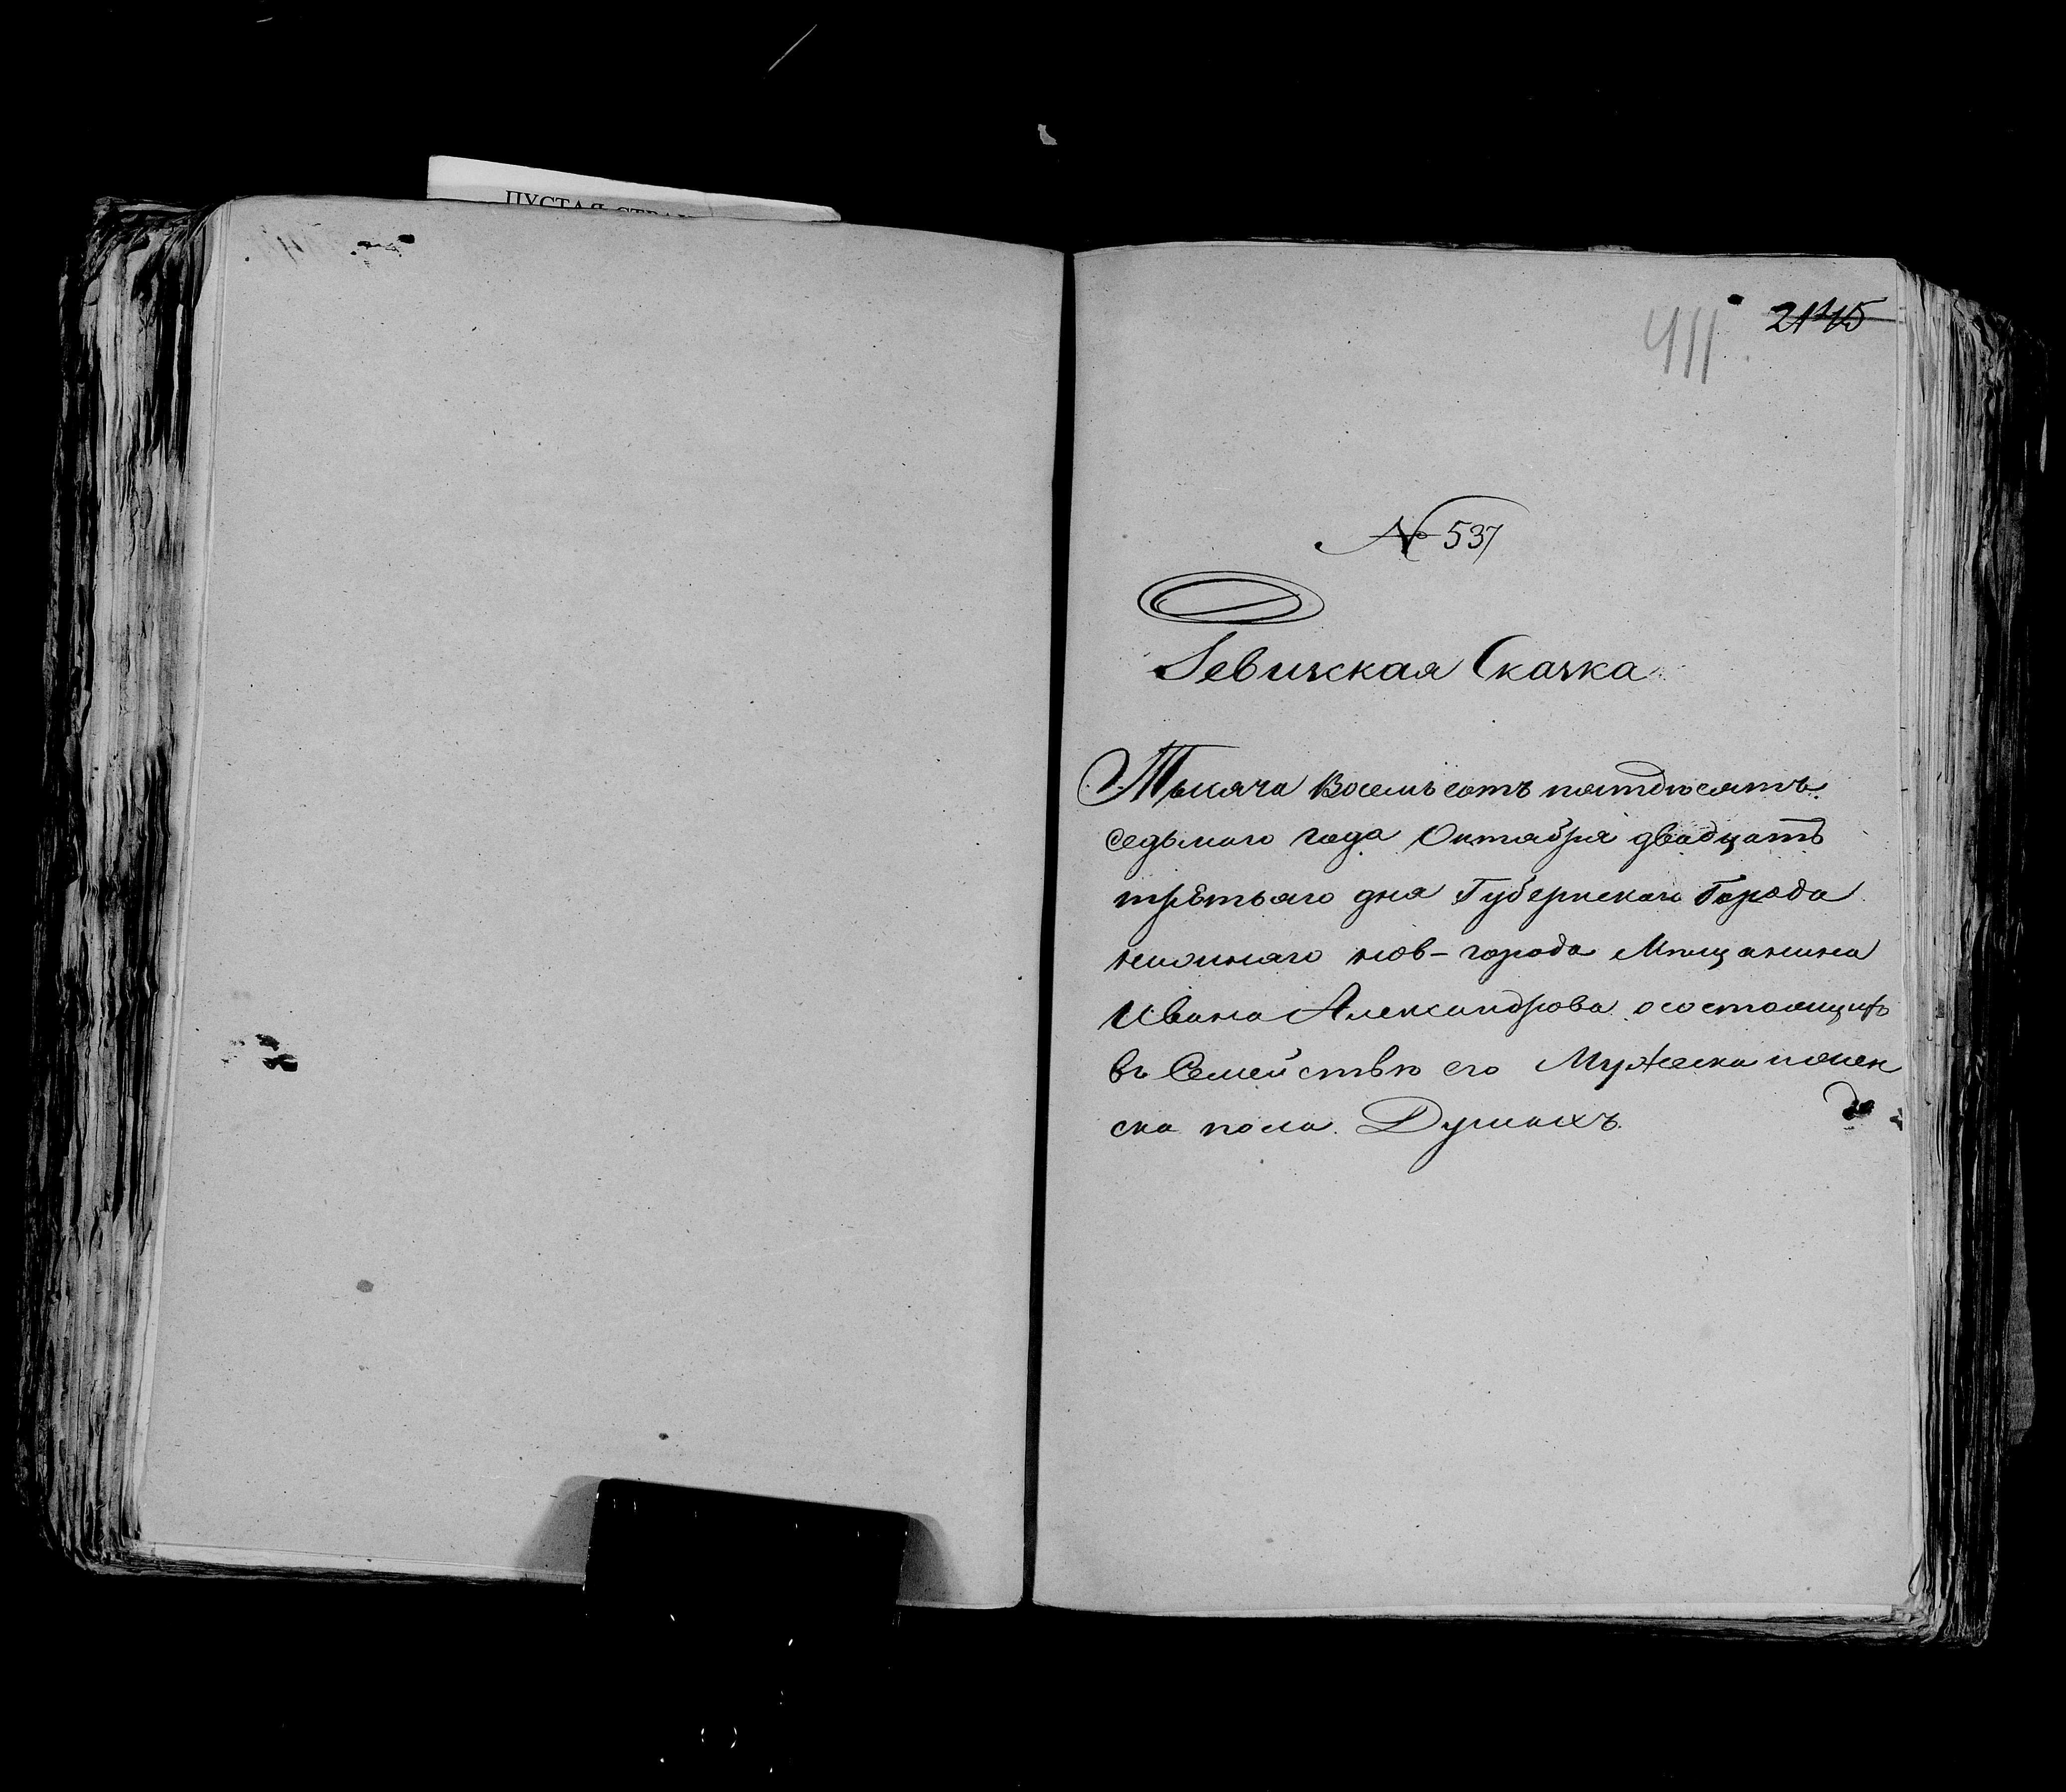 ПУСТАЯ СТРАН
411
2145
№ 537
Ревижская Скаска
Тысяча Восемьсотъ пятдѣсятъ
седьмаго года Октября двадцать
трѣтьяго дня Губернскаго Города
нижняго нов-города Мѣщанина
Ивана Александрова о состоящихъ
въ Семействѣ его Мужеска и жен
ска пола Душахъ.